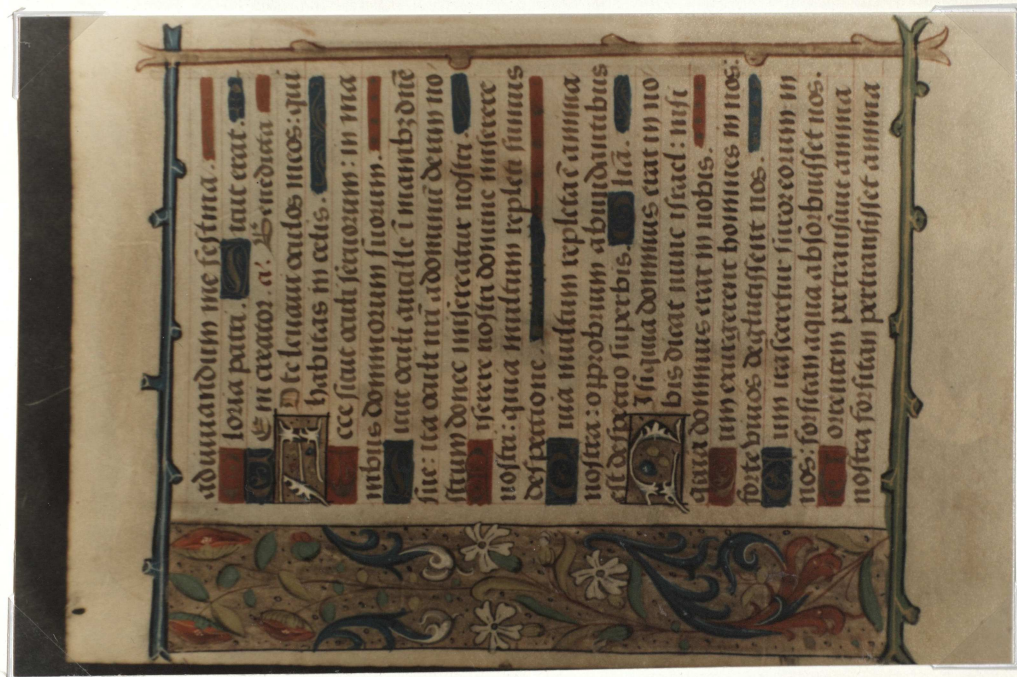 adiuuandum me festina.
Gloria patri. Sicut erat
Memento creator. a͛. Benedicta
Ad te leuaui oculos meos: qui
habitas in celis.
Ecce sicut oculi seruorum: in ma
nibus dominorum suorum.
Sicut oculi ancille ī manibꝫ dn̄e
sue: ita oculi nr̄i. ad dominū deum no
strum donec misereatur nostri.
Miserere nostri domine miserere
nostri: quia multum repleti sumus
despectione.
Quia multum repleta ē anima
nostra: opprobrium abūdantibus
est despectio superbis. Gl̄ia.
Nisi quia dominus erat in no
bis dicat nunc israel: nisi
quia dominus erat in nobis.
Cum exurgerent homines in nos:
forte viuos deglutissent nos.
Cum irasceretur furor eorum in
nos: forsitan aqua absorbuisset nos.
Torrentem pertransiuit anima
nostra forsitan pertransisset anima